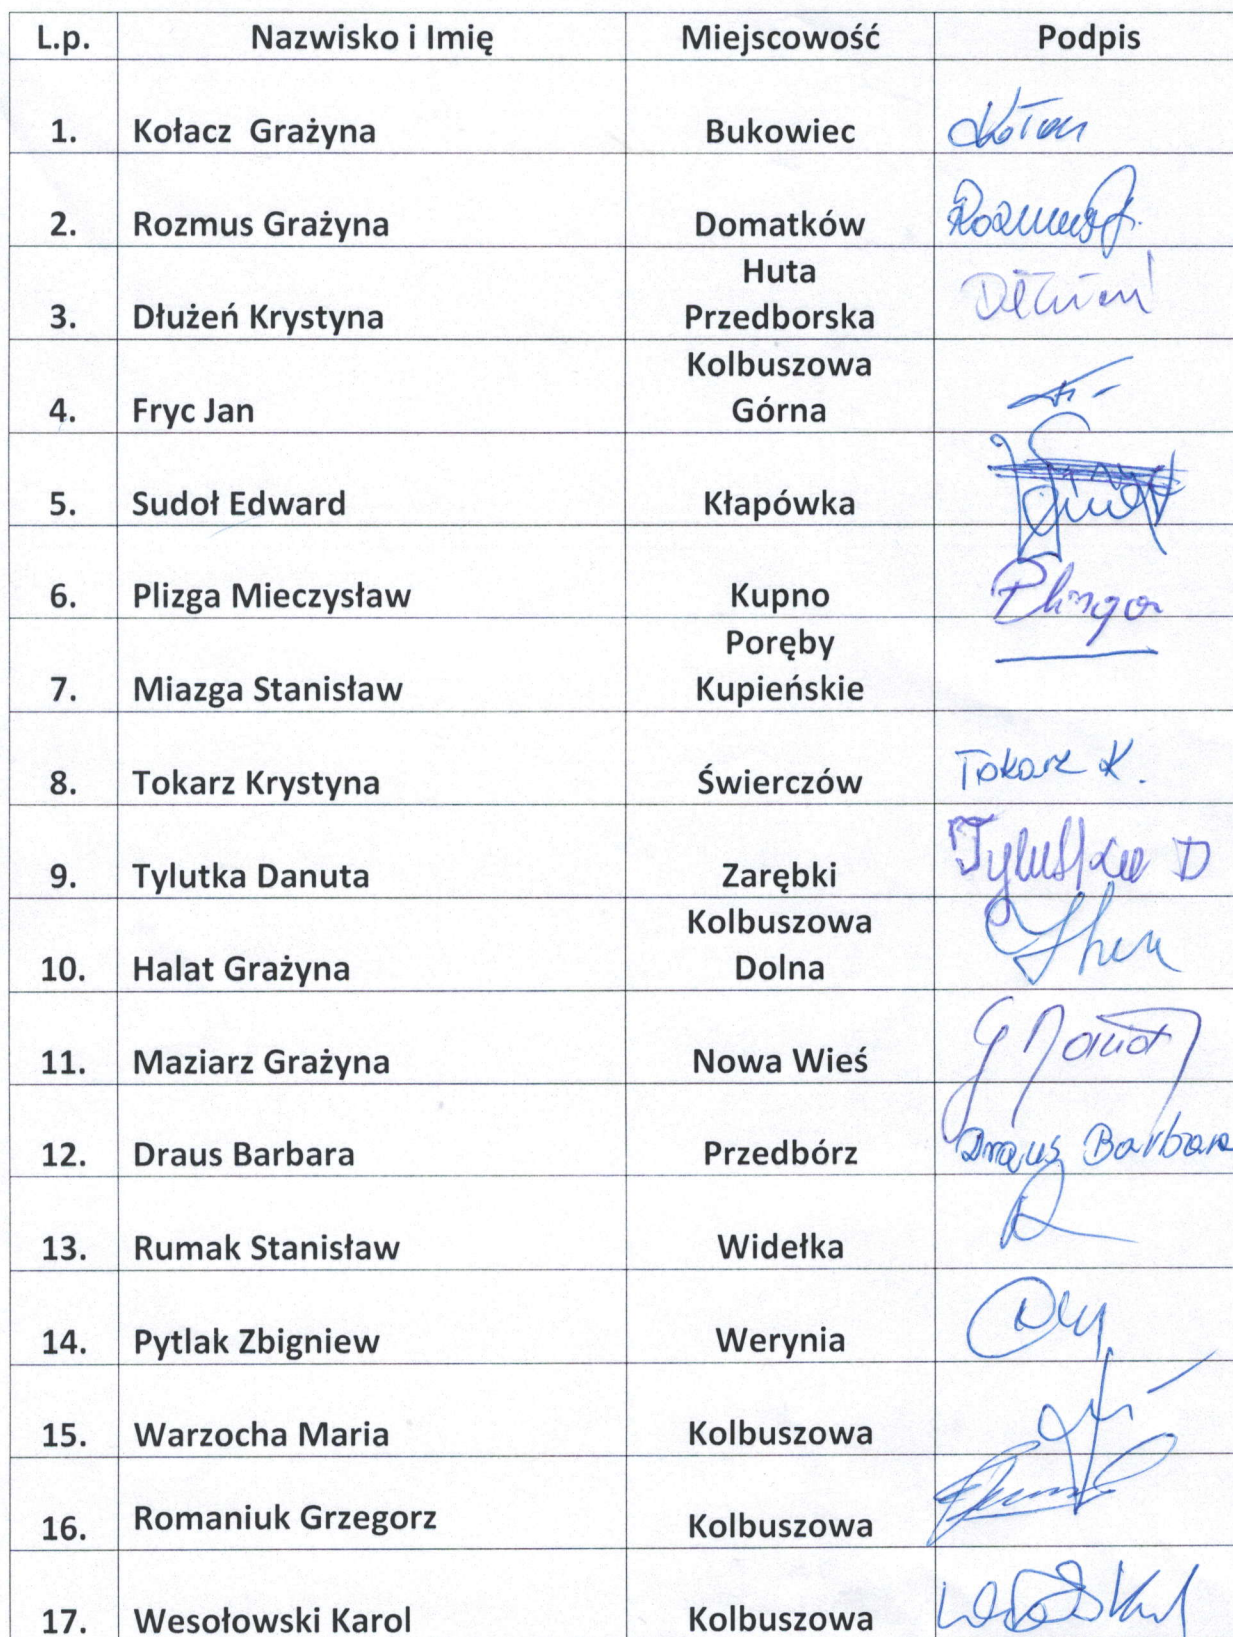 L.p. Nazwisko i Imię Miejscowość Podpis
1. Kołacz Grażyna Bukowiec
2. Rozmus Grażyna Domatków
Huta
3. Dłużeń Krystyna Przedborska
Kolbuszowa
4. Fryc Jan Górna
5. Sudoł Edward Kłapówka
6. Plizga Mieczysław Kupno
Poręby
7. Miazga Stanisław Kupieńskie
8. Tokarz Krystyna Świerczów Tokarz K.
9. Tylutka Danuta Zarębki Tylutka D
Kolbuszowa
10. Halat Grażyna Dolna
11. Maziarz Grażyna Nowa Wieś
12. Draus Barbara Przedbórz Draus Barbara
13. Rumak Stanisław Widełka
14. Pytlak Zbigniew Werynia
15. Warzocha Maria Kolbuszowa
16. Romaniuk Grzegorz Kolbuszowa
17. Wesołowski Karol Kolbuszowa